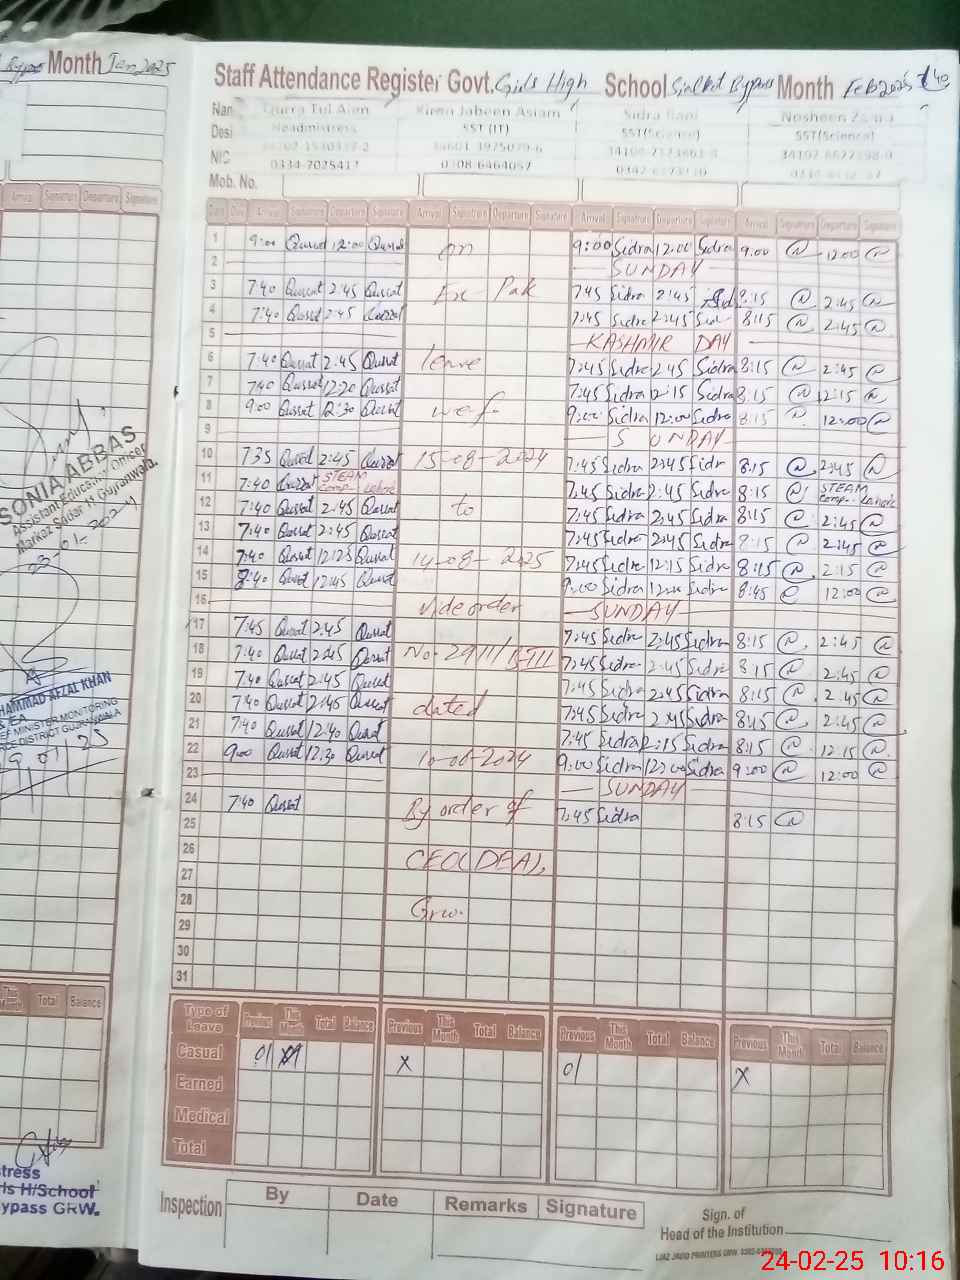 Month Jan 2025
Staff Attendance Register Govt. Girls High School Sialkot Bypass Month Feb 2025
Qurra Tul Aien Kiren Jabeen Aslam Sidra Nosheen
Headmistress SST (IT) SST(Science) SST(Science)
NIC
0334-7025417 0308-6464057
Mob. No.
Arrival Signature Departure Signature
Date Day Arrival Signature Departure Signature Arrival Signature Departure Signature Arrival Signature Departure Signature Arrival Signature Departure Signature
1 9:00 Qurrat 12:00 Qurrat on 9:00 Sidra 12:00 Sidra 9:00 12:00
2 SUNDAY
3 7:40 Qurrat 2:45 Qurrat Ex-Pak 7:45 Sidra 2:45 8:15 2:45
4 7:40 Qurrat 2:45 Qurrat 7:45 Sidra 2:45 8:15 2:45
5 KASHMIR DAY
6 7:40 Qurrat 2:45 Qurrat leave 7:45 Sidra 2:45 Sidra 8:15 2:45
7 7:40 Qurrat 12:20 Qurrat 7:45 Sidra 12:15 Sidra 8:15 12:15
8 9:00 Qurrat 12:30 Qurrat w.e.f. 9:00 Sidra 12:00 Sidra 8:15 12:00
9 SUNDAY
10 7:35 Qurrat 2:45 Qurrat 15-08-2024 7:45 Sidra 2:45 Sidra 8:15 2:45
11 7:40 Qurrat STEAM Comp. Lahore 7:45 Sidra 2:45 Sidra 8:15 STEAM Comp. Lahore
12 7:40 Qurrat 2:45 Qurrat to 7:45 Sidra 2:45 Sidra 8:15 2:45
13 7:40 Qurrat 2:45 Qurrat 7:45 Sidra 2:45 Sidra 8:15 2:45
14 7:40 Qurrat 12:25 Qurrat 14-08-2025 7:45 Sidra 12:15 Sidra 8:15 2:15
15 8:40 Qurrat 12:45 Qurrat 9:00 Sidra 12:00 Sidra 8:45 12:00
16 vide order SUNDAY
17 7:45 Qurrat 2:45 Qurrat 7:45 Sidra 2:45 Sidra 8:15 2:45
18 7:40 Qurrat 2:45 Qurrat No. 2911/ 7:45 Sidra 2:45 Sidra 8:15 2:45
19 7:40 Qurrat 2:45 Qurrat 7:45 Sidra 2:45 Sidra 8:15 2:45
20 7:40 Qurrat 2:45 Qurrat dated 7:45 Sidra 2:45 Sidra 8:15 2:45
21 7:40 Qurrat 12:40 Qurrat 7:45 Sidra 12:15 Sidra 8:15 12:15
22 9:00 Qurrat 12:30 Qurrat 10-06-2024 9:00 Sidra 12:00 Sidra 9:00 12:00
23 SUNDAY
24 7:40 Qurrat By order of 7:45 Sidra 8:15
25
26 CEO(DEA),
27
28 Grw.
29
30
31
SONIA ABBAS
Assistant Education Officer
Markaz Sadar 11 Gujranwala.
MUHAMMAD AFZAL KHAN
MEA
CHIEF MINISTER MONITORING
FORCE DISTRICT GUJRANWALA
This Month Total Balance
Type of Leave Previous This Month Total Balance Previous This Month Total Balance Previous This Month Total Balance Previous This Month Total Balance
Casual 01 X 01 X
Earned
Medical
Total
Inspection By Date Remarks Signature
Sign. of
Head of the Institution
tress
ls H/School
ypass GRW.
24-02-25 10:16